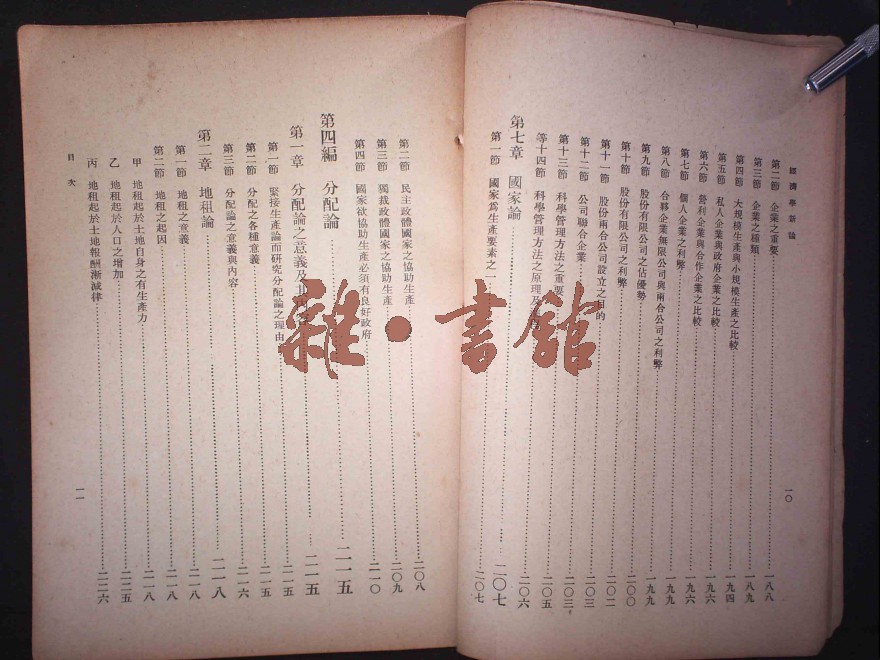 經濟學新論
第二節 企業之重要 一八八
第三節 企業之種類 一八九
第四節 大規模生產與小規模生產之比較 一九四
第五節 私人企業與政府企業之比較 一九六
第六節 營利企業與合作企業之比較 一九六
第七節 個人企業之利弊 一九八
第八節 合夥企業無限公司與兩合公司之利弊 一九九
第九節 股份有限公司之佔優勢 一九九
第十節 股份有限公司之利弊 二〇〇
第十一節 股份兩合公司設立之目的 二〇二
第十二節 公司聯合企業 二〇三
第十三節 科學管理方法之重要 二〇三
等十四節 科學管理方法之原理及 二〇五
第七章 國家論 二〇七
第一節 國家爲生產要素之一 二〇七
一〇
第二節 民主政體國家之協助生產 二〇八
第三節 獨裁政體國家之協助生產 二〇九
第四節 國家欲協助生產必須有良好政府 二一〇
第四編 分配論 二一五
第一章 分配論之意義及其 二一五
第一節 緊接生產論而研究分配論之理由 二一五
第二節 分配之各種意義 二一五
第三節 分配論之意義與內容 二一六
第二章 地租論 二一八
第一節 地租之意義 二一八
第二節 地租之起因 二一八
甲 地租起於土地自身之有生產力 二一八
乙 地租起於人口之增加 二二五
丙 地租起於土地報酬漸減律 二二六
目次
一一
雜·書館